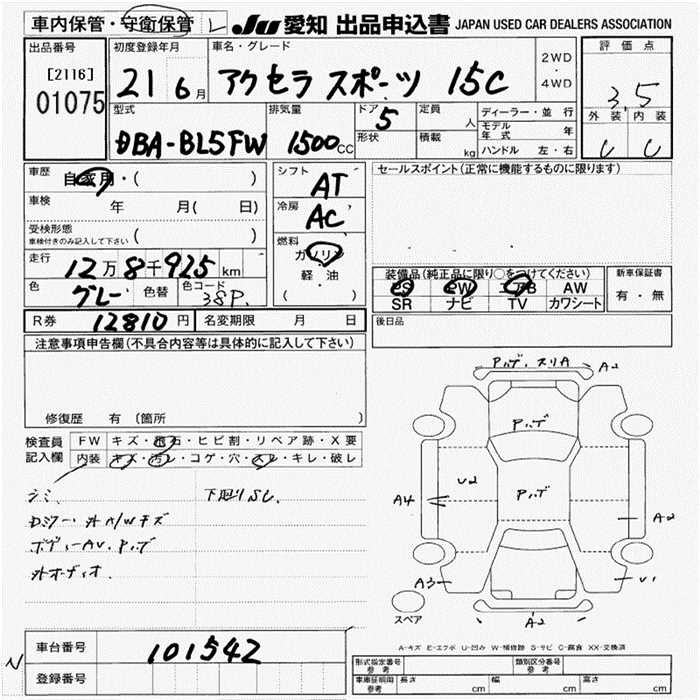 車内保管・守衛保管
JU 愛知 出品申込書 JAPAN USED CAR DEALERS ASSOCIATION
出品番号
[2116]
01075
初度登録年月
21 6月
車名・グレード
アクセラ スポーツ 15C
2WD
・
4WD
評価点
3.5
外装 内装
型式
DBA-BL5FW
排気量
1500CC
ドア 5
形状
定員 人
積載 kg
ディーラー・並行
モデル年式 年
ハンドル 左・右
車歴
自家用・( )
車検 年 月( 日)
受検形態
車検付きのみ記入して下さい ( )
走行
12万8千925km
色 グレー 色替 色コード 38P.
シフト
AT
冷房
AC
燃料
ガソリン
軽・油
( )
セールスポイント(正常に機能するものに限ります)
装備品(純正品に限り○をつけてください)
PS PW エアB AW
SR ナビ TV カワシート
新車保証書
有・無
R券 12810円 名変期限 月 日
後日品
注意事項申告欄(不具合内容等は具体的に記入して下さい)
修復歴 有 (箇所 )
検査員
記入欄
FW キズ・飛石・ヒビ割・リペア跡・X要
内装 キズ・汚レ・コゲ・穴・スレ・キレ・破レ
シミ、 下回りSし.
Dミラー外A/Wキズ
ボディーAU.Pハゲ
外オーディオ.
Pハゲ.スリA A2
Pハゲ
U2
Pハゲ
A4
A2
A3
U1
A2
スペア
A-キズ E-エクボ U-凹み W-補修跡 S-サビ C-腐食 XX-交換済
車台番号 101542
登録番号
N
形式指定番号
参考
類別区分番号
参考
車庫証明用
参考
長さ cm 幅 cm 高さ cm